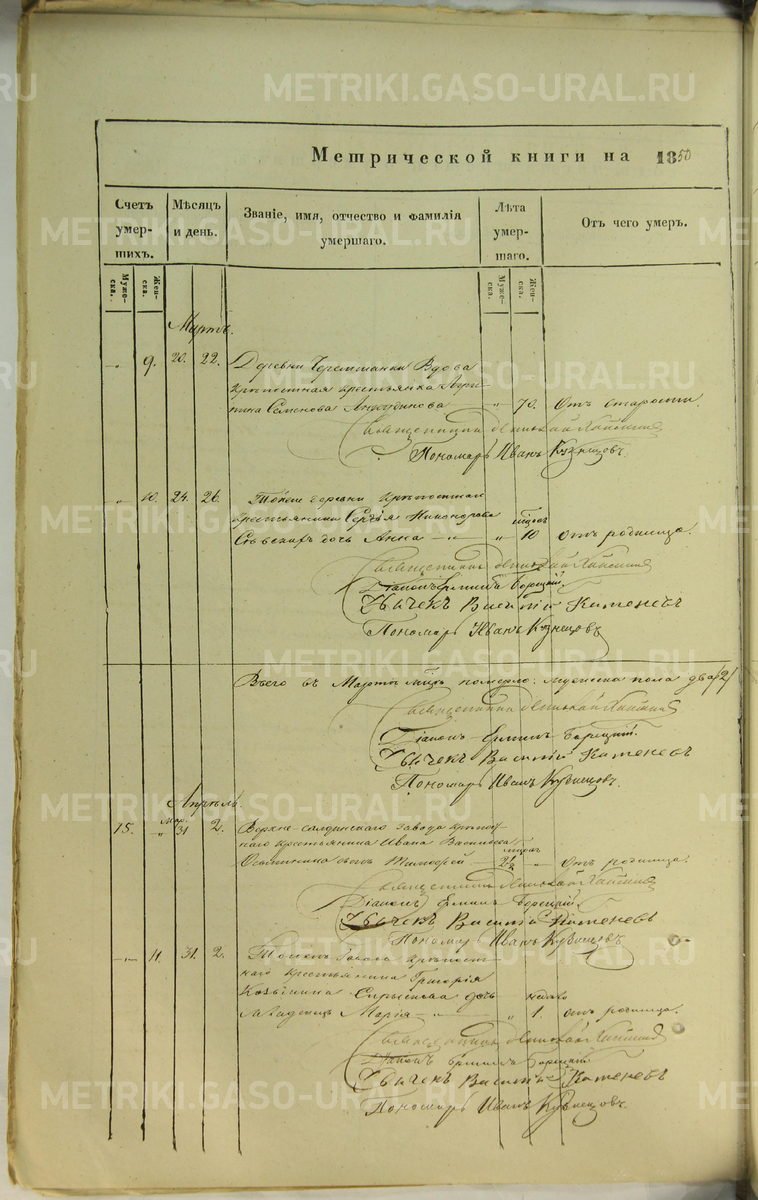 METRIKI.GASO-URAL.RU
Метрической книги на 1850
Счетъ умер- шихъ.
Мѣсяцъ и день.
Званіе, имя, отчество и фамилія умершаго.
Лѣта умер- шаго.
Отъ чего умеръ.
Муже- ска.
Жен- ска.
Муже- ска.
Жен- ска.
Мартъ.
„ 9. 20. 22. Деревни Черемшанки Вдова
крѣпостная крестьянка
Семенова — „ 70. Отъ старости
Священникъ
Пономарь Иванъ Кузнецовъ.
„ 10. 24. 26. Тойже деревни крѣпостнаго
крестьянина Сергѣя Никанорова мѣсяц
дочь Анна — „ — „ 10 отъ родимца.
Священникъ
Діаконъ Ермилъ Борецкій.
Дьячекъ Василій Каменевъ
Пономарь Иванъ Кузнецовъ
Всего въ Мартѣ мѣсяцѣ померло: мужеска пола два /2/
Священникъ
Діаконъ Ермилъ Борецкій.
Дьячекъ Василій Каменевъ
Пономарь Иванъ Кузнецовъ.
Апрѣль.
15. „ Мар. 31 2. Верхне-салдинскаго завода крѣпост-
наго крестьянина Ивана Васильева мѣсяц
сынъ Тимофей — 2½ „ Отъ родимца.
Священникъ
Діаконъ Ермилъ Борецкій.
Дьячекъ Василій Каменевъ
Пономарь Иванъ Кузнецовъ
„ 11. 31. 2. Тогоже Завода крѣпост-
наго крестьянина Григорія
Козьмина дочь
Марія — „ — „ 1. отъ родимца.
Священникъ
Діаконъ Ермилъ Борецкій
Дьячекъ Василій Каменевъ
Пономарь Иванъ Кузнецовъ.